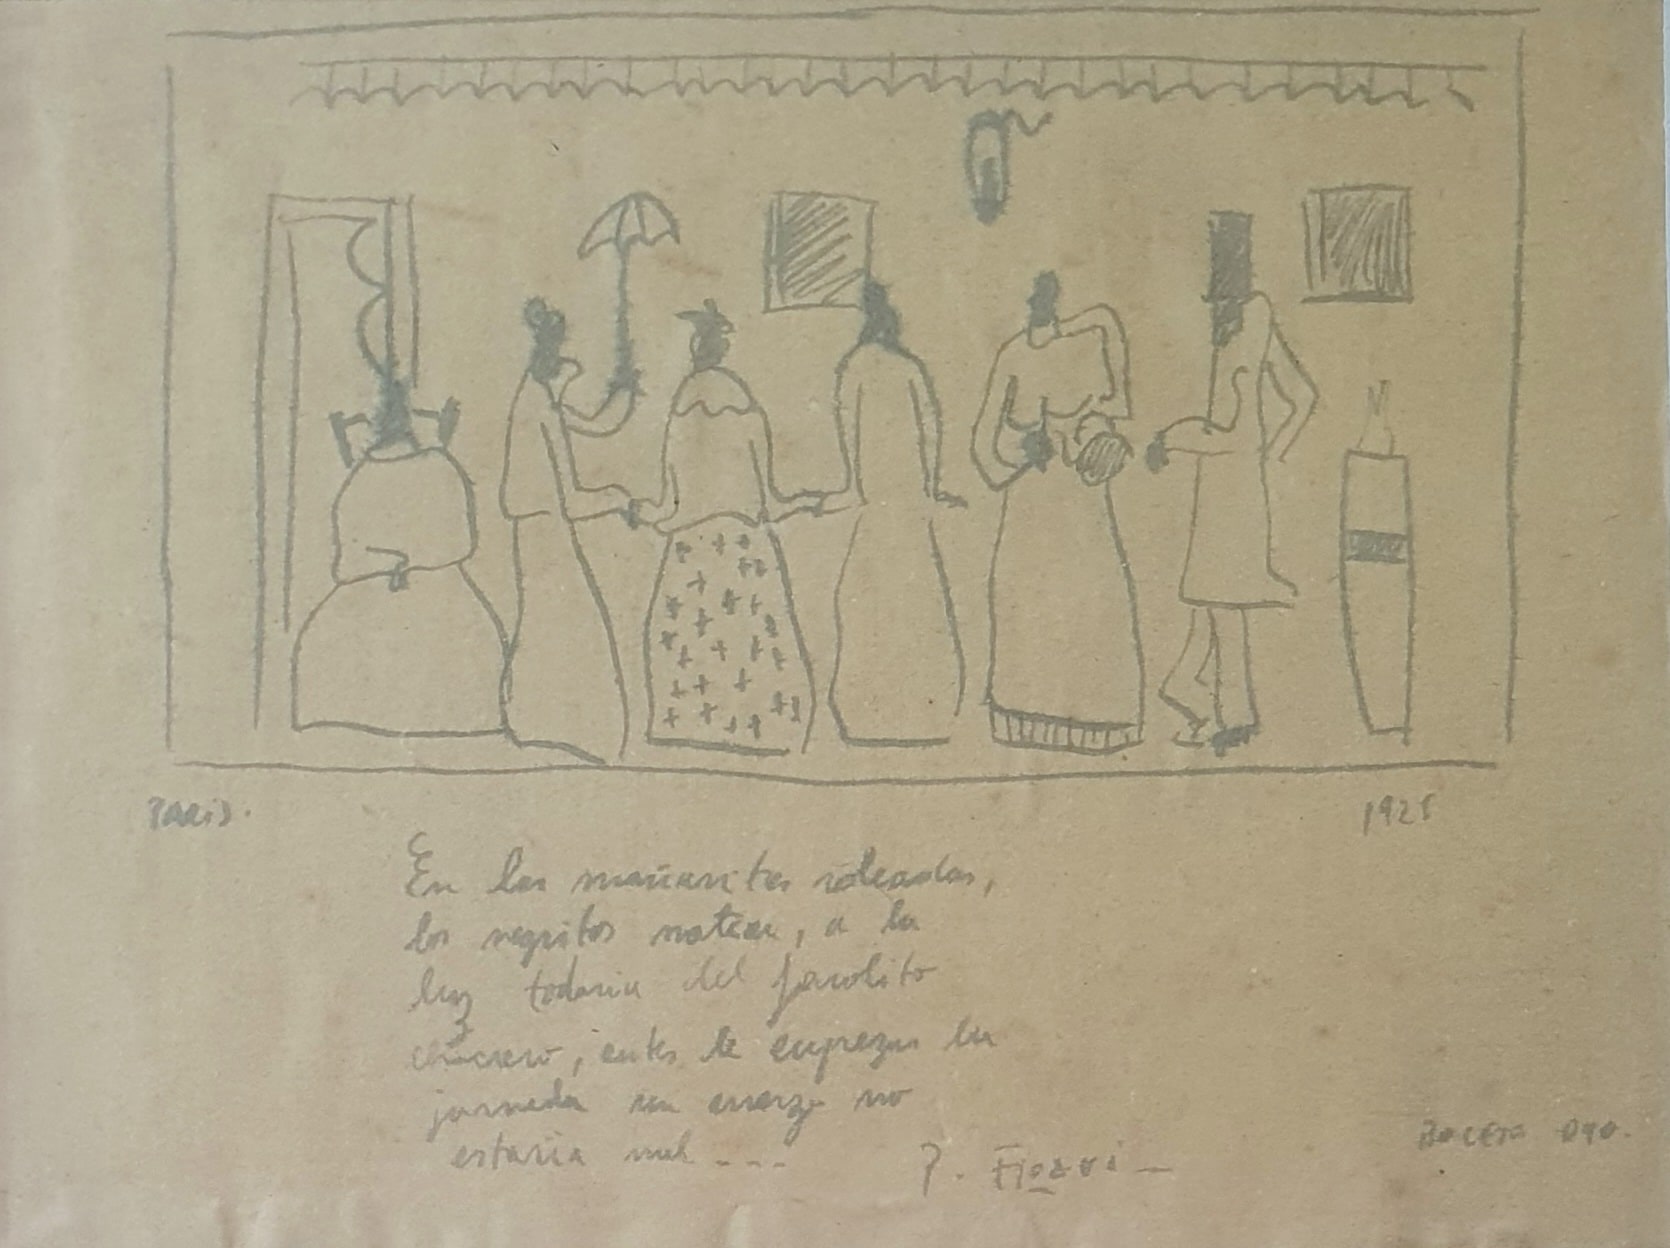 Paris.
1925
En las mañanitas soleadas,
los negritos matean, a la
luz todavia del farolito
, antes de empezar la
jornada un no
estaria mal ---
P. Figari —
Boceto Ogo.